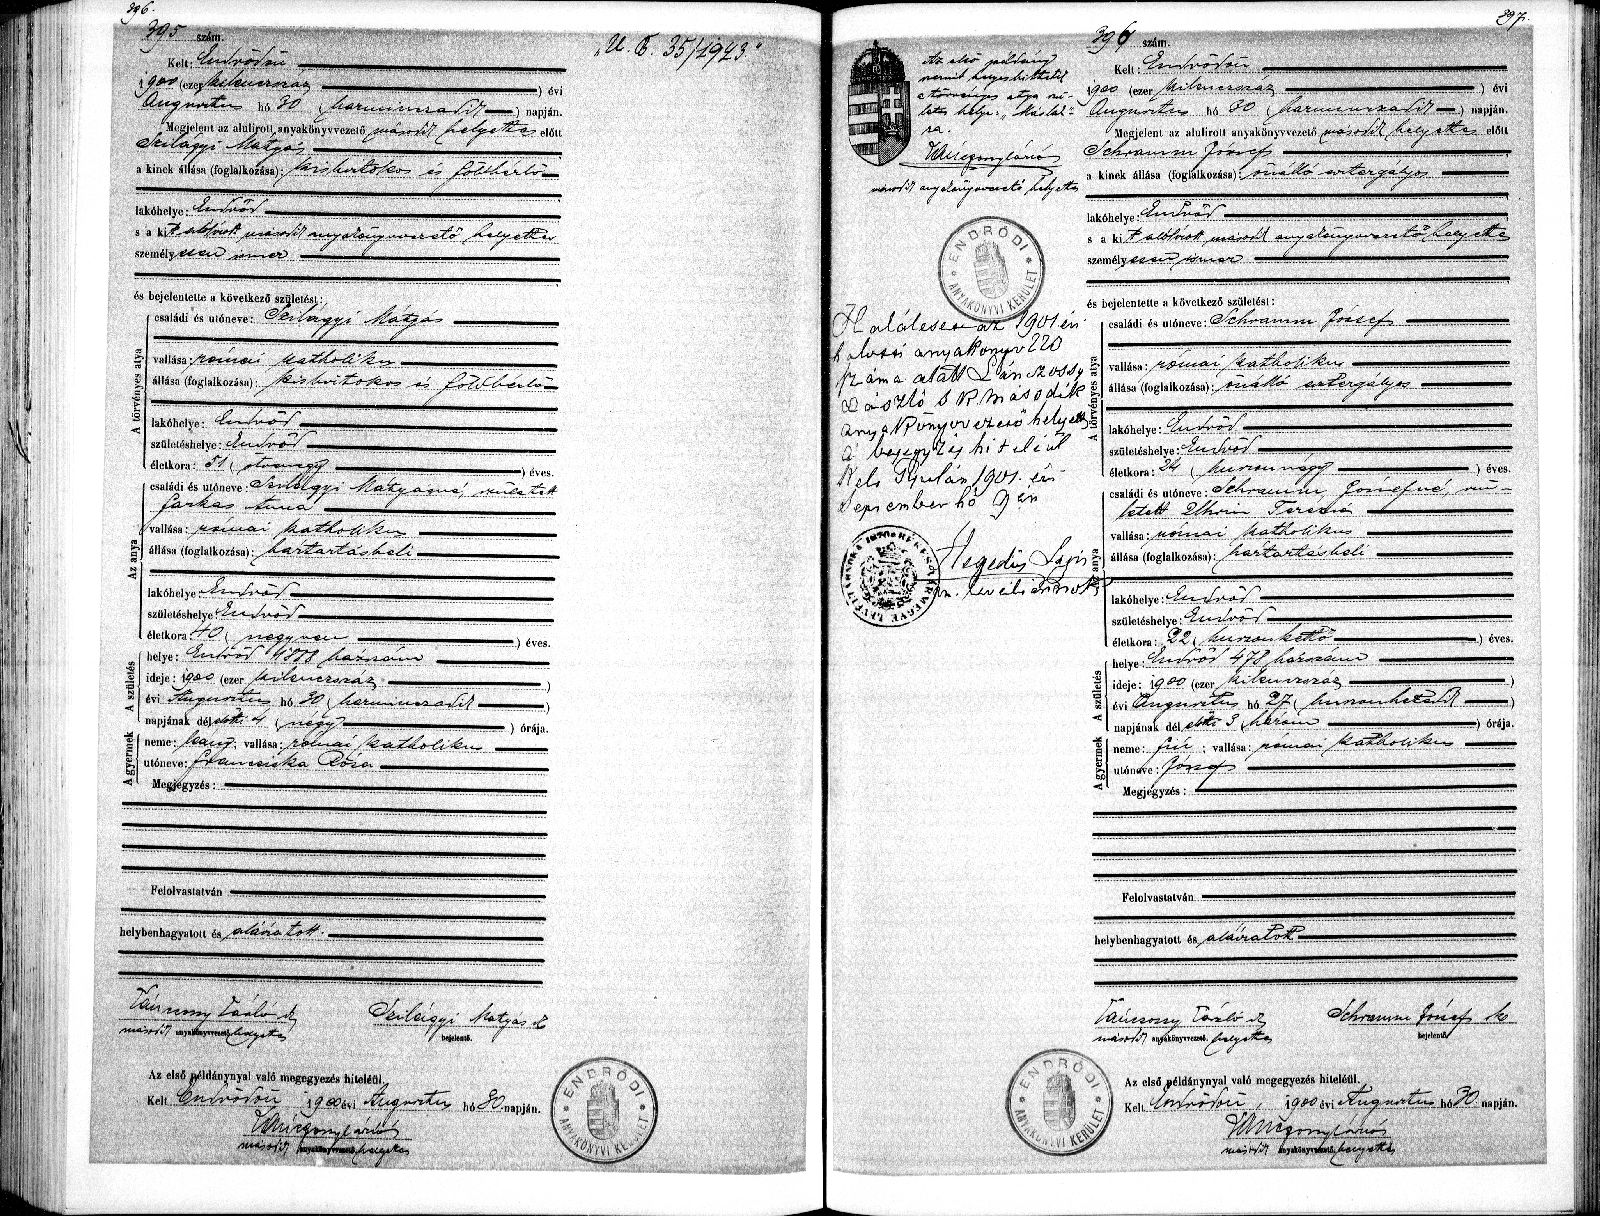 396.
395 szám.
"U. B. 35/1943"
Kelt: Endrődön
1900 (ezer kilenczszáz) évi
Augusztus hó 30 (harminczadik) napján.
Megjelent az alulirott anyakönyvvezető második helyettes előtt
Szilágyi Mátyás
a kinek állása (foglalkozása): kisbirtokos és földbérlő
lakóhelye: Endrőd
s a kit alólirott második anyakönyvvezető helyettes
személyesen ismer
és bejelentette a következő születést:
A törvényes atya
családi és utóneve: Szilágyi Mátyás
vallása: római katholikus
állása (foglalkozása): kisbirtokos és földbérlő
lakóhelye: Endrőd
születéshelye: Endrőd
életkora: 51 (ötvenegy) éves.
Az anya
családi és utóneve: Szilágyi Mátyásné, született
Farkas Anna
vallása: római katholikus
állása (foglalkozása): háztartásbeli
lakóhelye: Endrőd
születéshelye: Endrőd
életkora: 40 (negyven) éves.
A születés
helye: Endrőd házszám
ideje: 1900 (ezer kilenczszáz)
évi Augusztus hó 30 (harminczadik)
napjának délelőtti 4 (négy) órája.
A gyermek
neme: leány; vallása: római katholikus
utóneve: Franciska Róza
Megjegyzés:
Felolvastatván
helybenhagyatott és aláiratott.
László
második anyakönyvvezető helyettes
Szilágyi Mátyás
bejelentő.
Az első példánynyal való megegyezés hiteléül.
Kelt Endrődön, 1900 évi Augusztus hó 30 napján.
második anyakönyvvezető helyettes
ENDRŐDI
ANYAKÖNYVI KERÜLET
397.
396 szám.
Az első példány
szerint helyesbittetik
a törvényes atya szü-
letés helye:
második anyakönyvvezető helyettes
ENDRŐDI
ANYAKÖNYVI KERÜLET
Halálesete az 1901 évi
halotti anyakönyv 220
száma alatt
László s. k. második
anyakönyvvezető helyettes
A bejegyzés hiteléül
Kelt Gyulán 1901. évi
September hó 9 én
Hegedűs
Kelt: Endrődön
1900 (ezer kilenczszáz) évi
Augusztus hó 30 (harminczadik) napján.
Megjelent az alulirott anyakönyvvezető második helyettes előtt
Schramm József
a kinek állása (foglalkozása): önálló esztergályos
lakóhelye: Endrőd
s a kit alólirott második anyakönyvvezető helyettes
személyesen ismer
és bejelentette a következő születést:
A törvényes atya
családi és utóneve: Schramm József
vallása: római katholikus
állása (foglalkozása): önálló esztergályos
lakóhelye: Endrőd
születéshelye: Endrőd
életkora: 24 (huszonnégy) éves.
Az anya
családi és utóneve: Schramm Józsefné, szü-
letett Terézia
vallása: római katholikus
állása (foglalkozása): háztartásbeli
lakóhelye: Endrőd
születéshelye: Endrőd
életkora: 22 (huszonkettő) éves.
A születés
helye: Endrőd 478 házszám
ideje: 1900 (ezer kilenczszáz)
évi Augusztus hó 27 (huszonhetedik)
napjának délelőtti 3 (három) órája.
A gyermek
neme: fiú; vallása: római katholikus
utóneve: József
Megjegyzés:
Felolvastatván
helybenhagyatott és aláiratott
László
második anyakönyvvezető helyettes
Schramm József
bejelentő.
Az első példánynyal való megegyezés hiteléül.
Kelt Endrődön, 1900 évi Augusztus hó 30 napján.
második anyakönyvvezető helyettes
ENDRŐDI
ANYAKÖNYVI KERÜLET